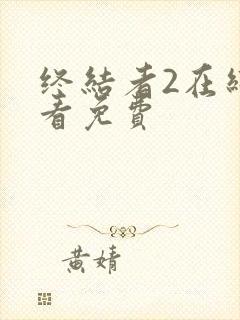 终结者2在线
看免费
黄婧